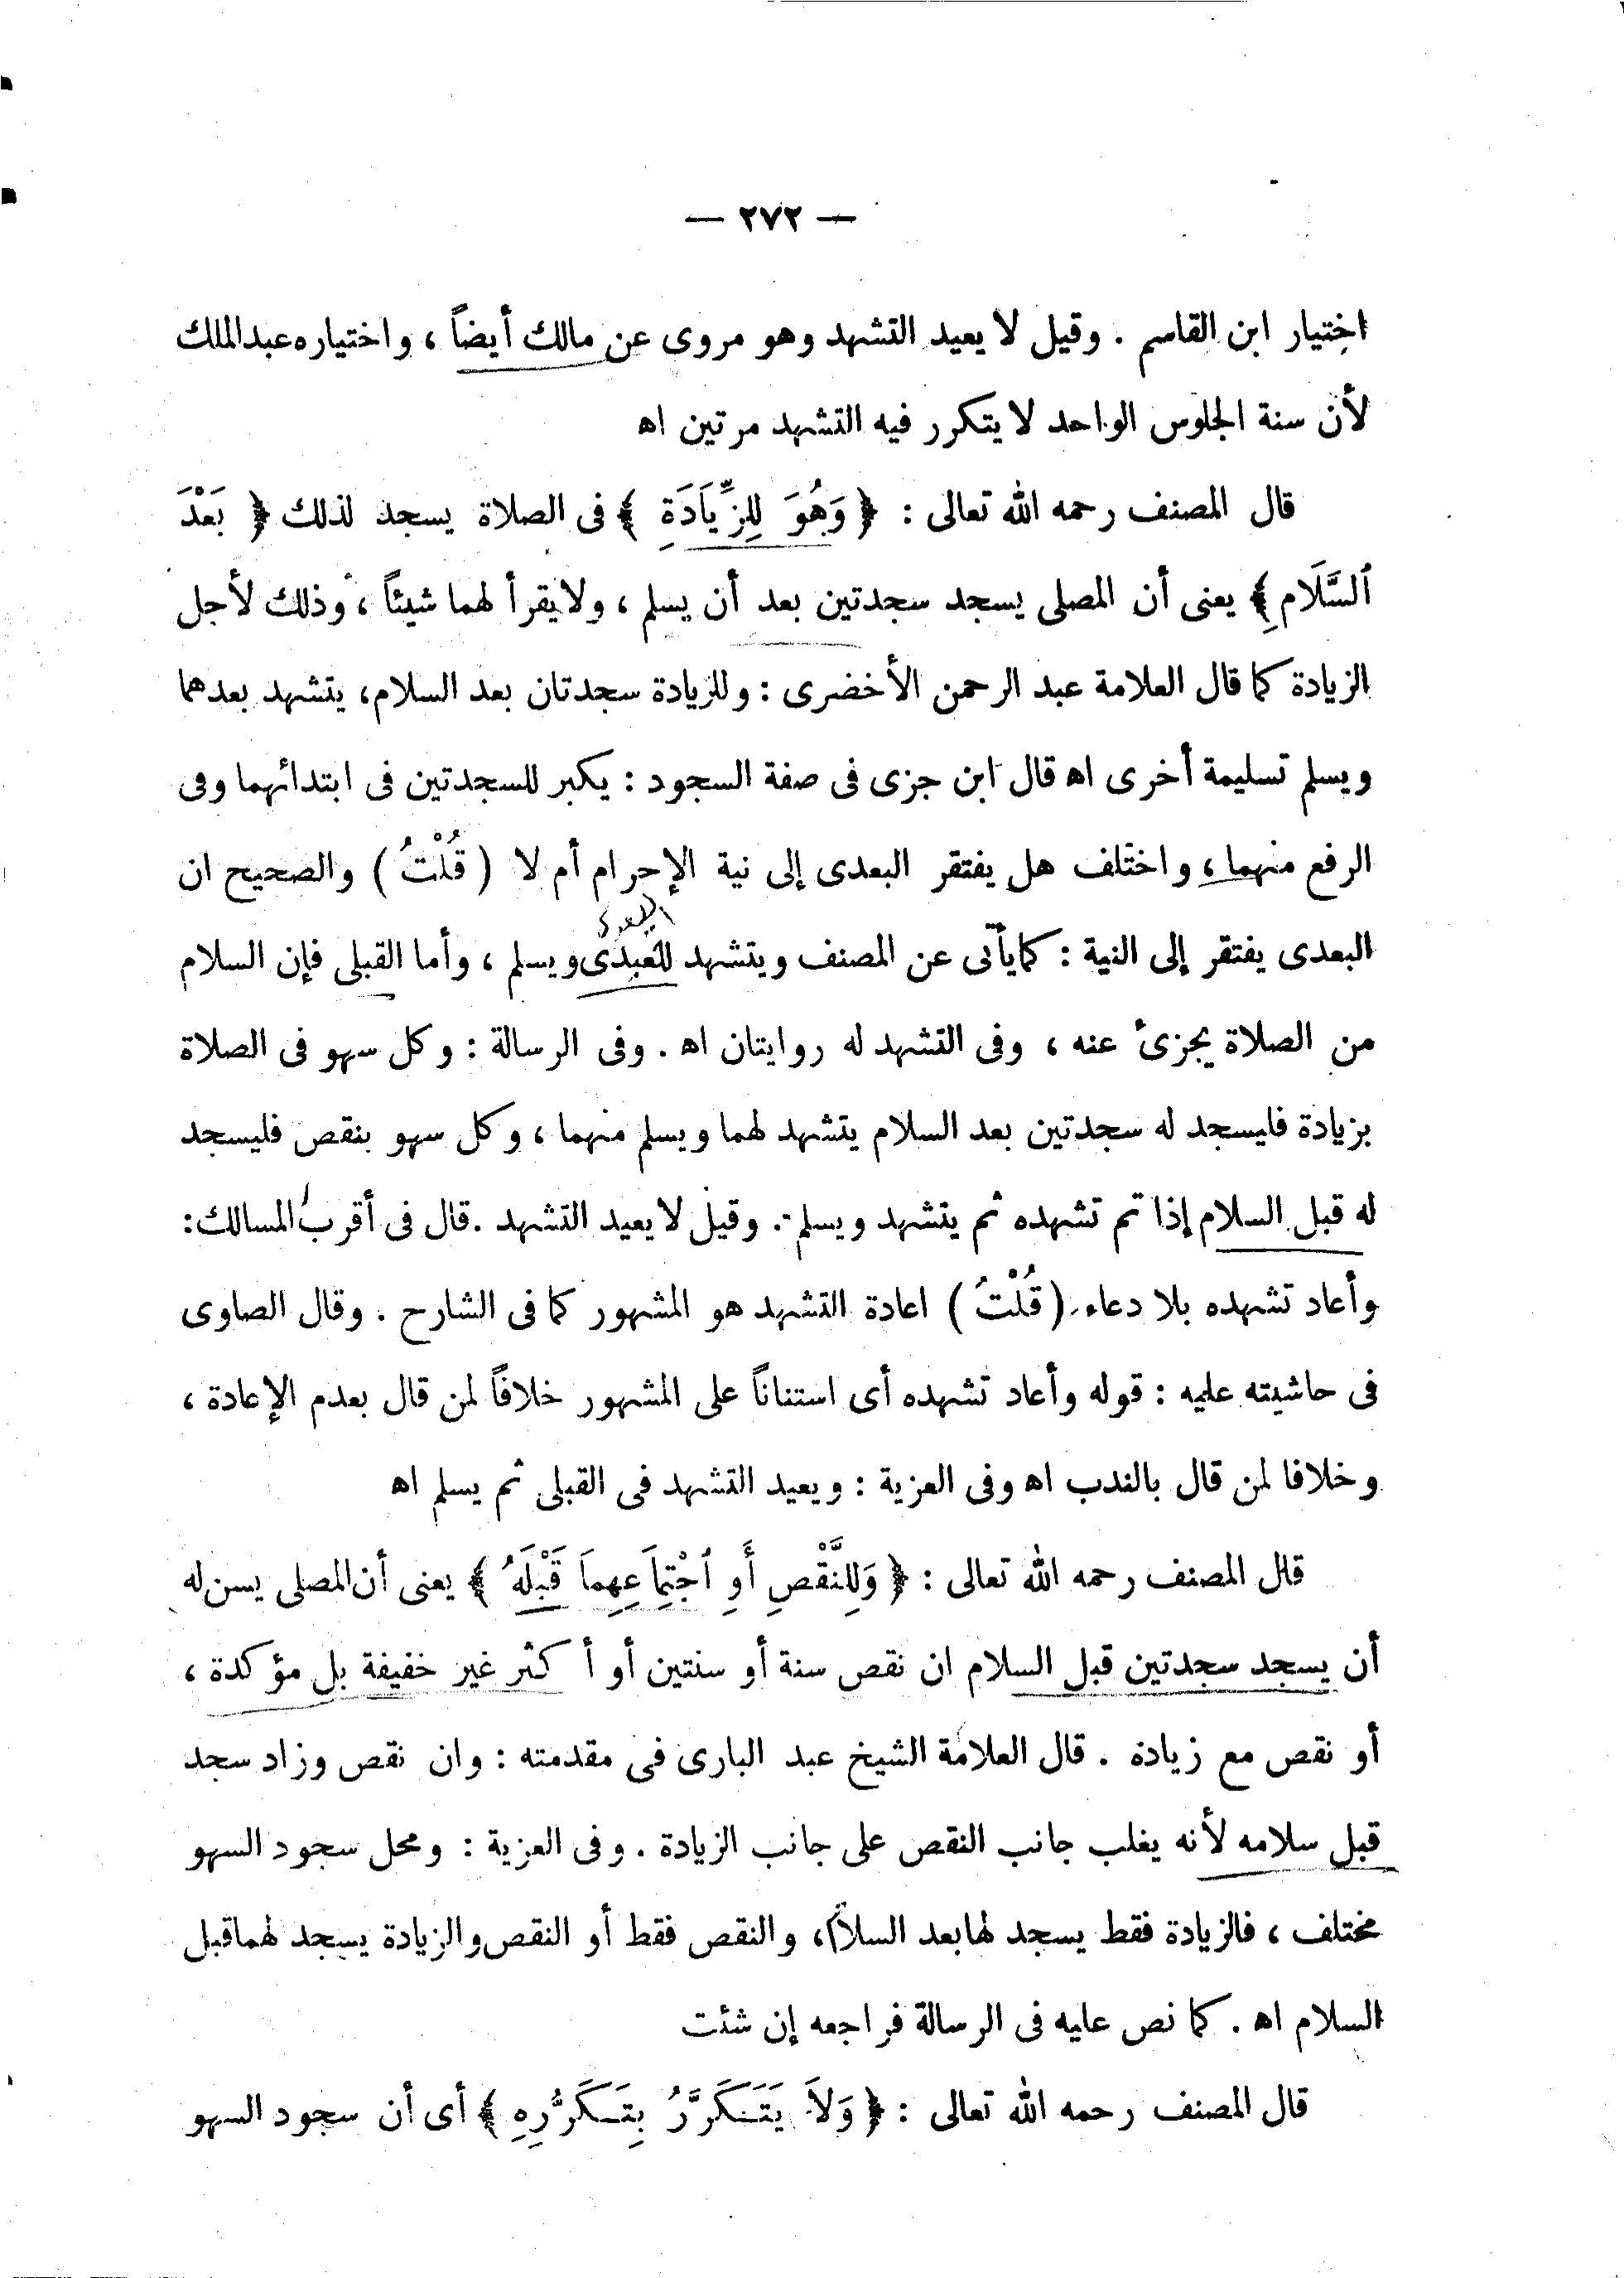 — ٢٧٢ —
اختيار ابن القاسم . وقيل لا يعيد التشهد وهو مروى عن مالك أيضاً ، واختياره عبد الملك
لأن سنة الجلوس الواحد لا يتكرر فيه التشهد مرتين اه
قال المصنف رحمه الله تعالى : ﴿ وَهُوَ لِلزِّيَادَةِ ﴾ فى الصلاة يسجد لذلك ﴿ بَعْدَ
ٱلسَّلَامِ ﴾ يعنى أن المصلى يسجد سجدتين بعد أن يسلم ، ولا يقرأ لهما شيئاً ، وذلك لأجل
الزيادة كما قال العلامة عبد الرحمن الأخضرى : وللزيادة سجدتان بعد السلام، يتشهد بعدهما
ويسلم تسليمة أخرى اه قال ابن جزى فى صفة السجود : يكبر للسجدتين فى ابتدائهما وفى
الرفع منهما ، واختلف هل يفتقر البعدى إلى نية الإحرام أم لا ( قُلْتُ ) والصحيح ان
البعدى
البعدى يفتقر إلى النية : كما يأتى عن المصنف ويتشهد للعبدى ويسلم ، وأما القبلى فإن السلام
من الصلاة يجزئ عنه ، وفى التشهد له روايتان اه . وفى الرسالة : وكل سهو فى الصلاة
بزيادة فليسجد له سجدتين بعد السلام يتشهد لهما ويسلم منهما ، وكل سهو بنقص فليسجد
له قبل السلام إذا تم تشهده ثم يتشهد ويسلم . وقيل لا يعيد التشهد . قال فى أقرب المسالك :
وأعاد تشهده بلا دعاء ( قُلْتُ ) اعادة التشهد هو المشهور كما فى الشارح . وقال الصاوى
فى حاشيته عليه : قوله وأعاد تشهده أى استناناً على المشهور خلافاً لمن قال بعدم الإعادة ،
وخلافا لمن قال بالندب اه وفى العزية : ويعيد التشهد فى القبلى ثم يسلم اه
قال المصنف رحمه الله تعالى : ﴿ وَلِلنَّقْصِ أَوِ ٱجْتِمَاعِهِمَا قَبْلَهُ ﴾ يعنى أن المصلى يسن له
أن يسجد سجدتين قبل السلام ان نقص سنة أو سنتين أو أكثر غير خفيفة بل مؤكدة ،
أو نقص مع زيادة . قال العلامة الشيخ عبد البارى فى مقدمته : وان نقص وزاد سجد
قبل سلامه لأنه يغلب جانب النقص على جانب الزيادة . وفى العزية : ومحل سجود السهو
مختلف ، فالزيادة فقط يسجد لها بعد السلام، والنقص فقط أو النقص والزيادة يسجد لهما قبل
السلام اه . كما نص عليه فى الرسالة فراجعه إن شئت
قال المصنف رحمه الله تعالى : ﴿ وَلَا يَتَكَرَّرُ بِتَكَرُّرِهِ ﴾ أى أن سجود السهو